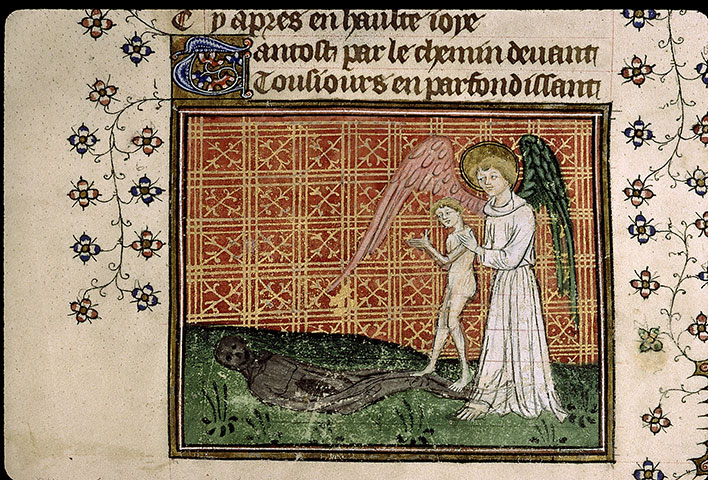 Cy apres en haulte ioye
Tantost par le chemin deuant
Tousiours en parfondissant